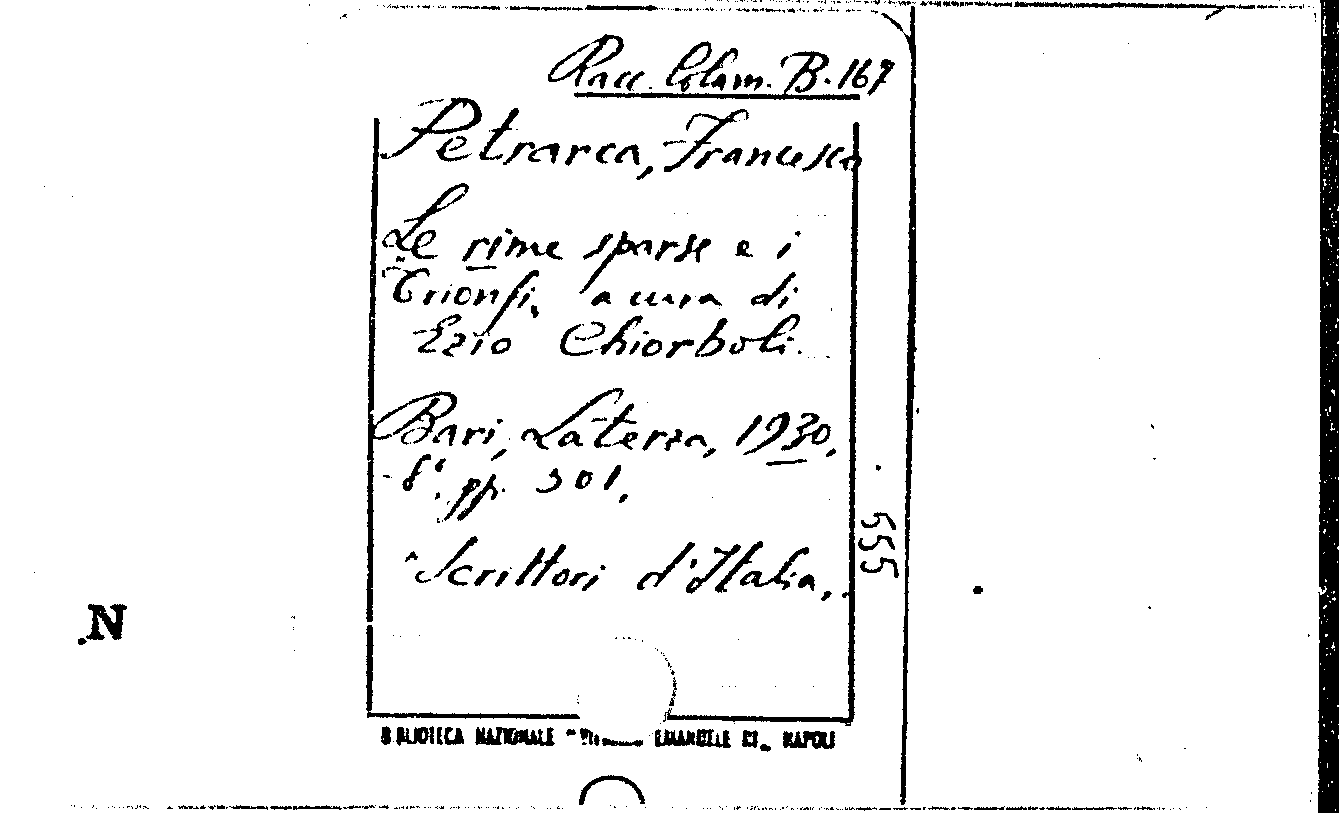 Racc. Colam. B. 167
Petrarca, Francesco
Le rime sparse e i
Trionfi, a cura di
Ezio Chiorboli.
Bari, Laterza, 1930.
8°. pp. 501.
"Scrittori d'Italia„.
555
N
BIBLIOTECA NAZIONALE EMANUELE III„ NAPOLI